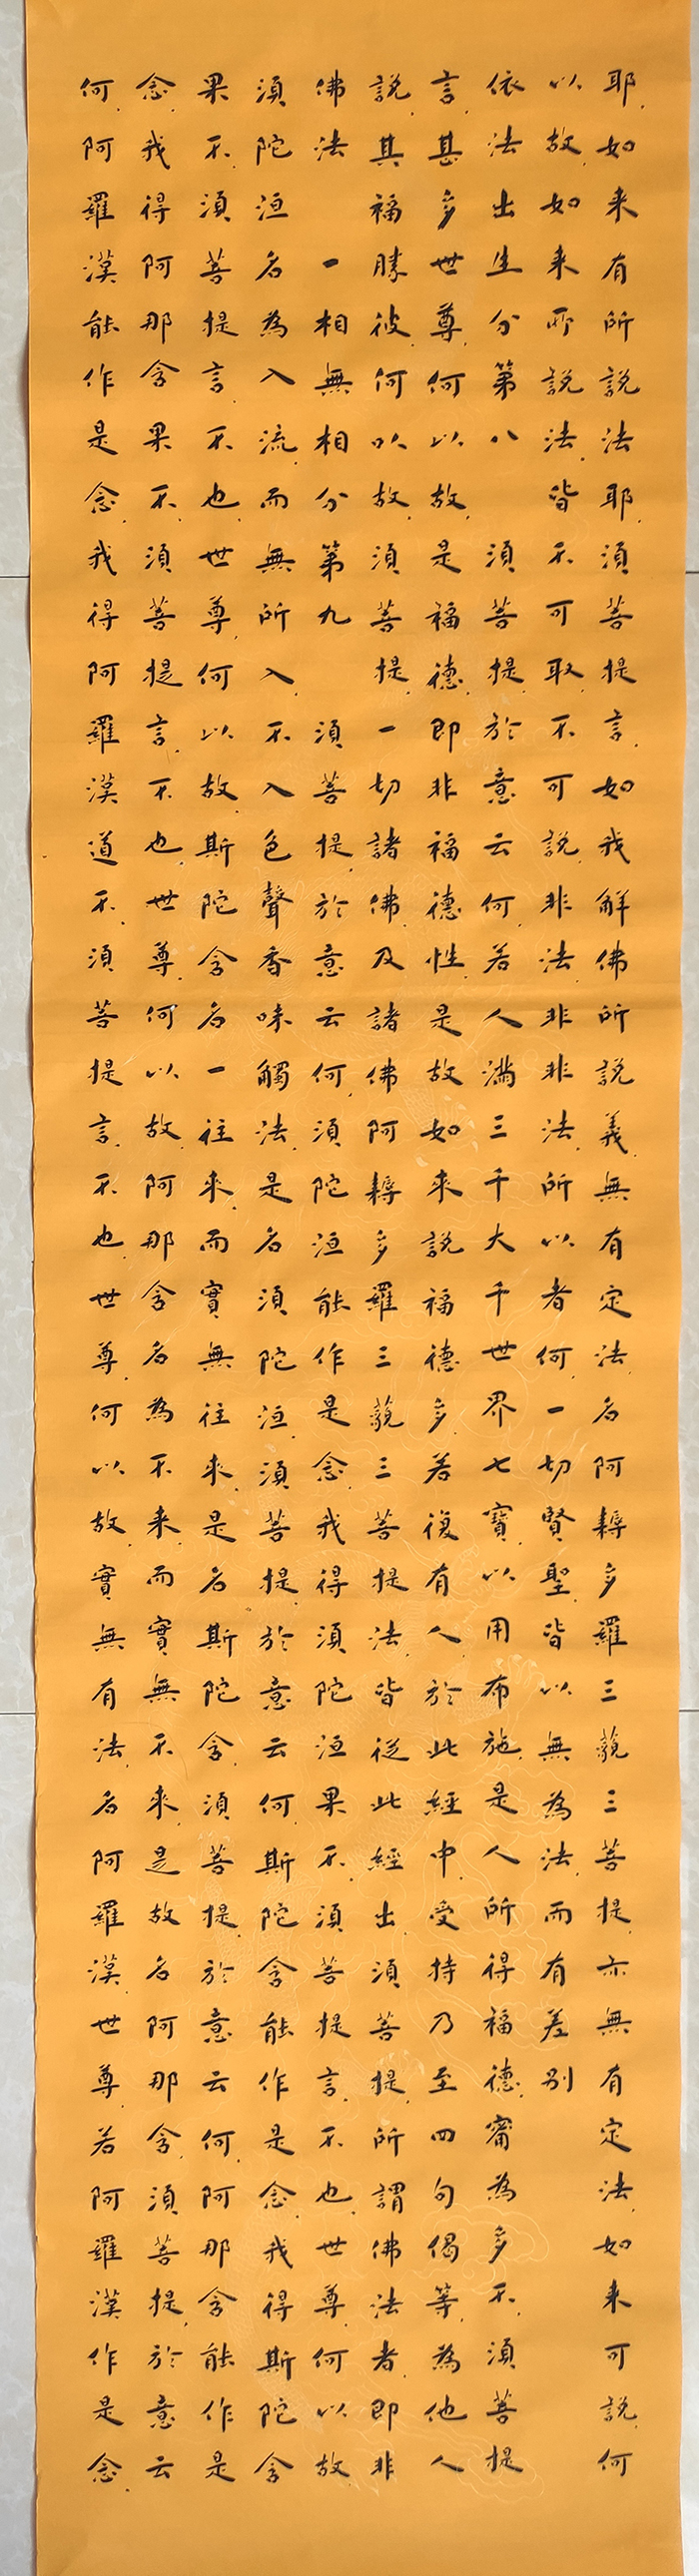 耶如来有所說法耶須菩提言如我解佛所說義無有定法名阿耨多羅三藐三菩提亦無有定法如来可說何
以故如来所說法皆不可取不可說非法非非法所以者何一切賢聖皆以無為法而有差别
依法出生分第八 須菩提於意云何若人滿三千大千世界七寶以用布施是人所得福德甯為多不須菩提
言甚多世尊何以故是福德即非福德性是故如來說福德多若復有人於此經中受持乃至四句偈等為他人
說其福勝彼何以故須菩提一切諸佛及諸佛阿耨多羅三藐三菩提法皆從此經出須菩提所謂佛法者即非
佛法 一相無相分第九 須菩提於意云何須陀洹能作是念我得須陀洹果不須菩提言不也世尊何以故
須陀洹名為入流而無所入不入色聲香味觸法是名須陀洹須菩提於意云何斯陀含能作是念我得斯陀含
果不須菩提言不也世尊何以故斯陀含名一往來而實無往來是名斯陀含須菩提於意云何阿那含能作是
念我得阿那含果不須菩提言不也世尊何以故阿那含名為不来而實無不來是故名阿那含須菩提於意云
何阿羅漢能作是念我得阿羅漢道不須菩提言不也世尊何以故實無有法名阿羅漢世尊若阿羅漢作是念